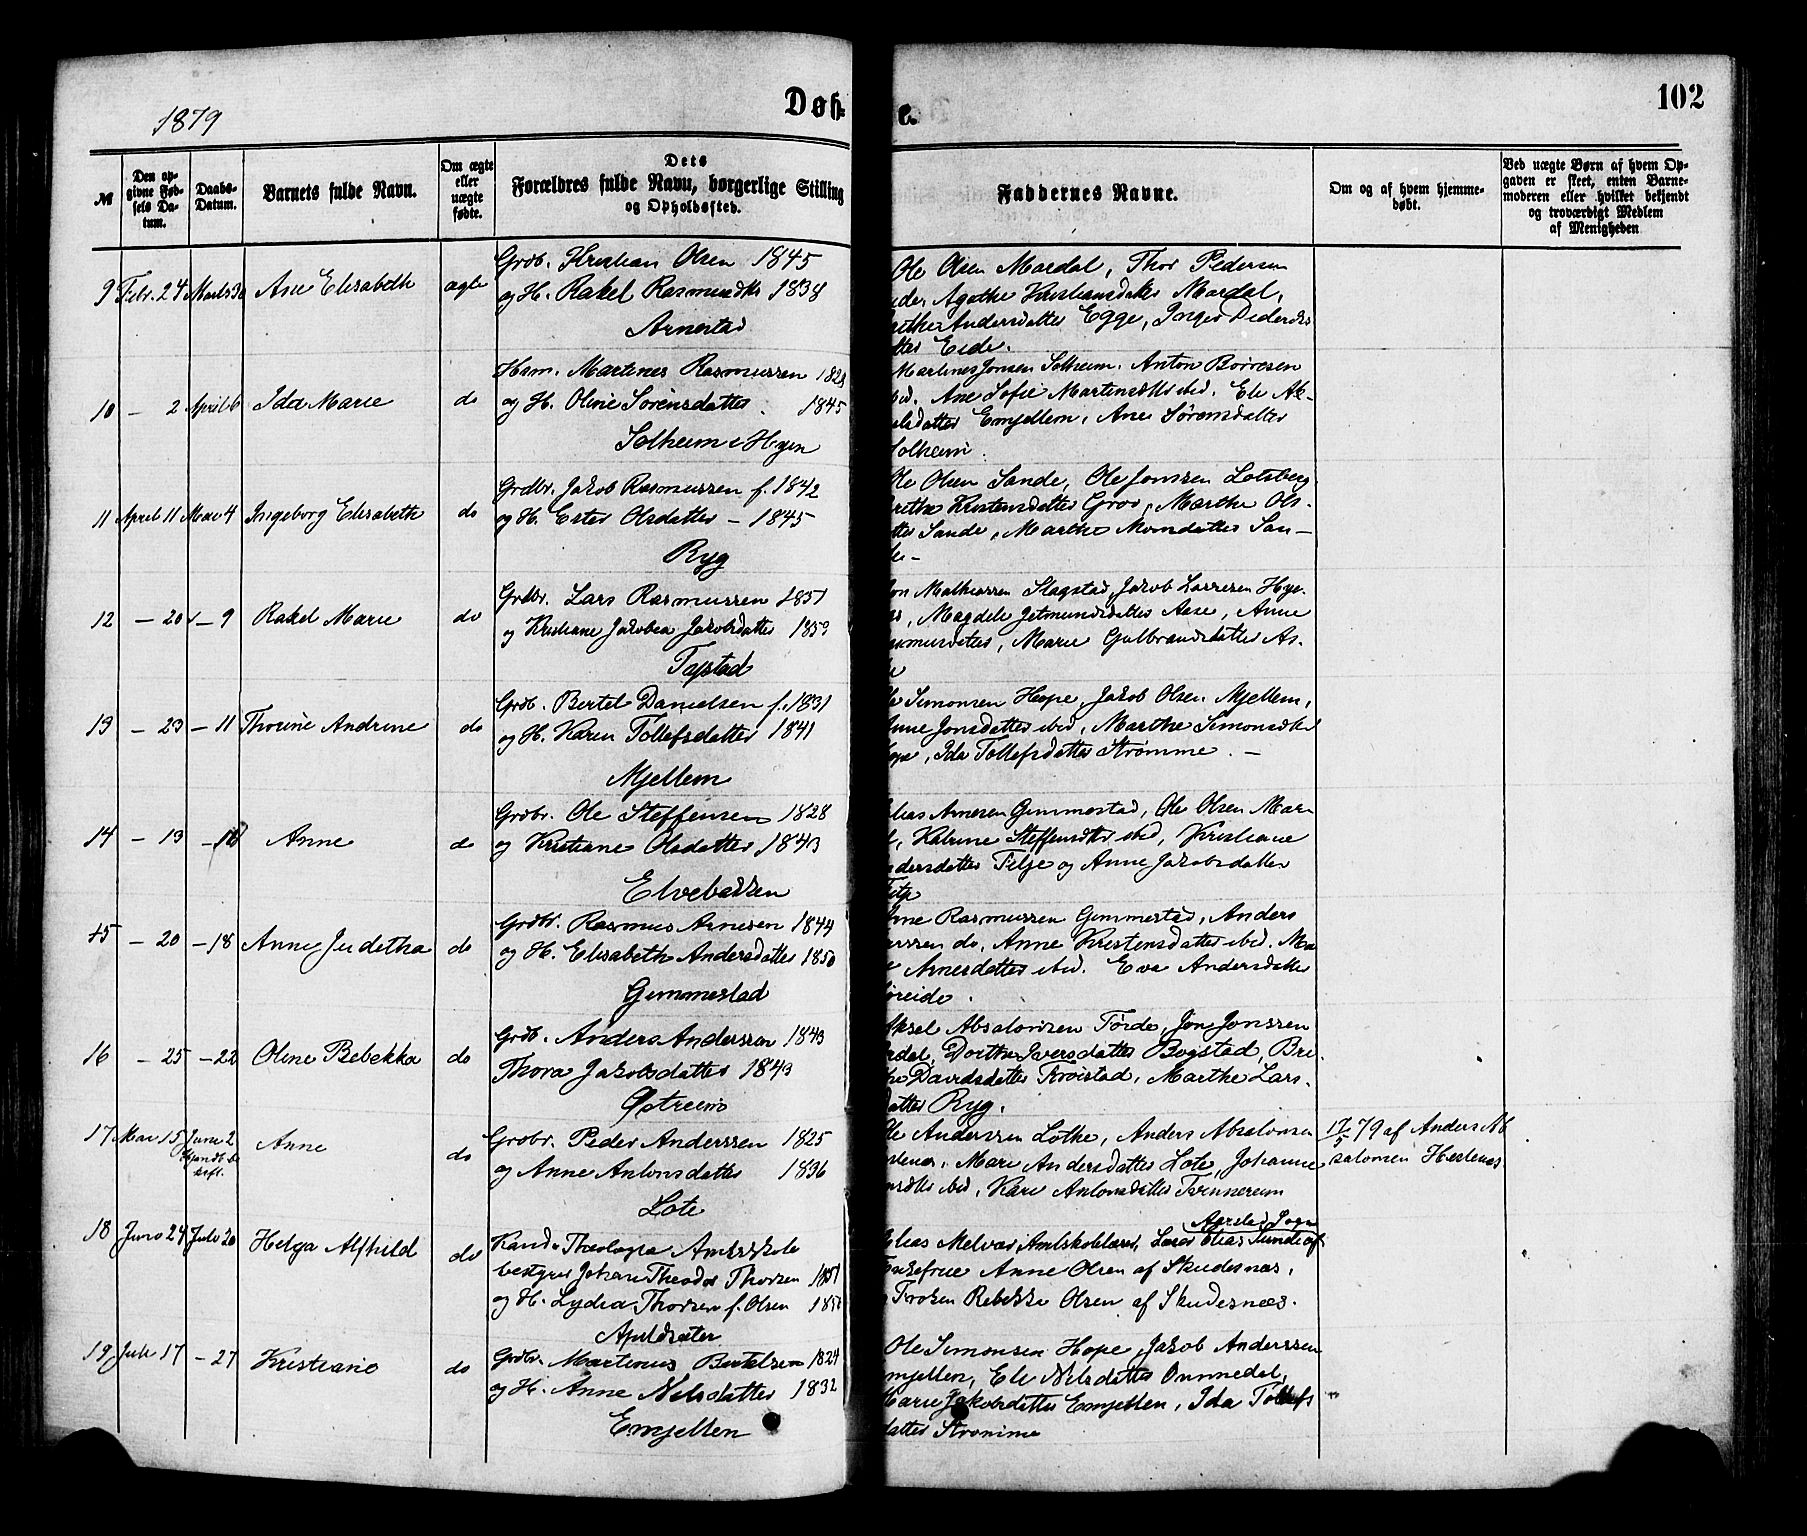 1879
Døbte.
102
№
Den opgivne Fødsels Datum.
Daabs-Datum.
Barnets fulde Navn.
Om ægte eller uægte fødte.
Dets Forældres fulde Navn, borgerlige Stilling og Opholdssted.
Faddernes Navne.
Om og af hvem hjemmedøbt.
Ved uægte Børn af hvem Opgaven er skeet, enten Barnemoderen eller hvilket bekjendt og troværdigt Medlem af Menigheden
9 Febr. 24 Marts 30 Ane Elisabeth ægte
Grdb. Kristian Olsen 1845
og H. Rakel Rasmusdtr 1838
Arnestad
Ole Olsen Mardal, Thor Pedersen
Agathe Kristiansdatter Mardal,
Andersdatter Egge, Inger Dideriks
Eide.
10 – 2 April 6 Ida Marie do
Hsm. Martines Rasmussen
og H. Oline Sørensdatter 1845
Solheim i Hyen
Martines Jonsen Solheim. Anton Børresen
Ane Sofie Martinsdtr ibid. Eli
Emjellem, Ane Sørensdatter
Solheim.
11 April 11 Mai 4 Ingeborg Elisabeth do
Grdbr. Jakob Rasmussen f. 1842
og H. Ester Olsdatter – 1845
Ryg
Ole Olsen Sande, Ole Jonssen Lotsberg
Kristensdatter Gror, Marthe Ols-
Sande, Marthe Monsdatter San-
de –
12 – 20 – 9 Rakel Marie do
Grdbr. Lars Rasmussen 1851
og Kristiane Jakobea Jakobsdatter 1859
Tystad
Mathiassen Slagstad, Jakob Lassesen Hye-
Magdele Jetmundsdatter Aase, Anne
Marie Gulbrandsdatter As-
13 – 23 – 11 Thorine Andrine do
Grdb. Bertel Danielsen f. 1831
og H. Karen Tollefsdatter 1841
Mjellem
Simonsen Hope, Jakob Olsen Mjellem,
Anne Jonsdatter ibid, Marthe Simonsdtr
Hope, Ida Tollefsdatter Strømme. –
14 – 13 – 18 Anne do
Grdbr. Ole Steffensen 1828
og Kristiane Olsdatter 1843
Elvebakken
Elias Arnesen Gimmestad, Ole Olsen Mar-
Katrine Steffensdtr ibid, Kristiane
Andersdatter Felje og Anne Jakobsdatter
15 – 20 – 18 Anne Judetha do
Grdbr. Rasmus Arnesen 1844
og H. Elisabeth Andersdatter 1850
Gimmestad
Arne Rasmussen Gimmestad, Anders
do, Anne Kristensdatter ibid. Ma-
Arnesdatter ibid. Eva Andersdatter
16 – 25 – 22 Oline Bebekka do
Grdb. Anders Anderssen 1843
Thora Jakobsdatter 1843
Østreim
Aksel Absalonsen Førde, Jon Jonssen
Dorthe Iversdatter Bogstad, Bri-
the Davidsdatter Troistad, Marthe Lars-
datter Ryg.
17 Mai 15 Juni 2 Anne do
Grdbr. Peder Anderssen 1825
og Anne Antonsdatter 1836
Lote
Ole Anderssen Lothe, Anders Absalonsen
Mari Andersdatter Lote, Johanne
ibid, Kari Antonsdatter Tvinnereim
17/5 79 af Anders Ab
salonsen Hestenes
18 Juni 24 Juli 20 Helga Alfhild do
Kand. Theologia Amtsskole
bestyrer Johan Theodor Thorsen 1851
og H. Lydia Thorsen f. Olsen
Apeldsæter
Elias Melvær Amtskolelærer, Lærer Elias Sunde af
Anne Olsen af Skudesnæs,
Frøken Rebekka Olsen af Skudesnæs.
19 Juli 17 – 27 Kristiane do
Grdbr. Martinus Bertelsen 1824
og H. Anne Nilsdatter 1832
Emjellen
Ole Simonsen Hope, Jakob Anderssen
Emjellen, Eli Nilsdatter Ommedal,
Marie Jakobsdatter Emjellen, Ida Tollefs
datter Strømme